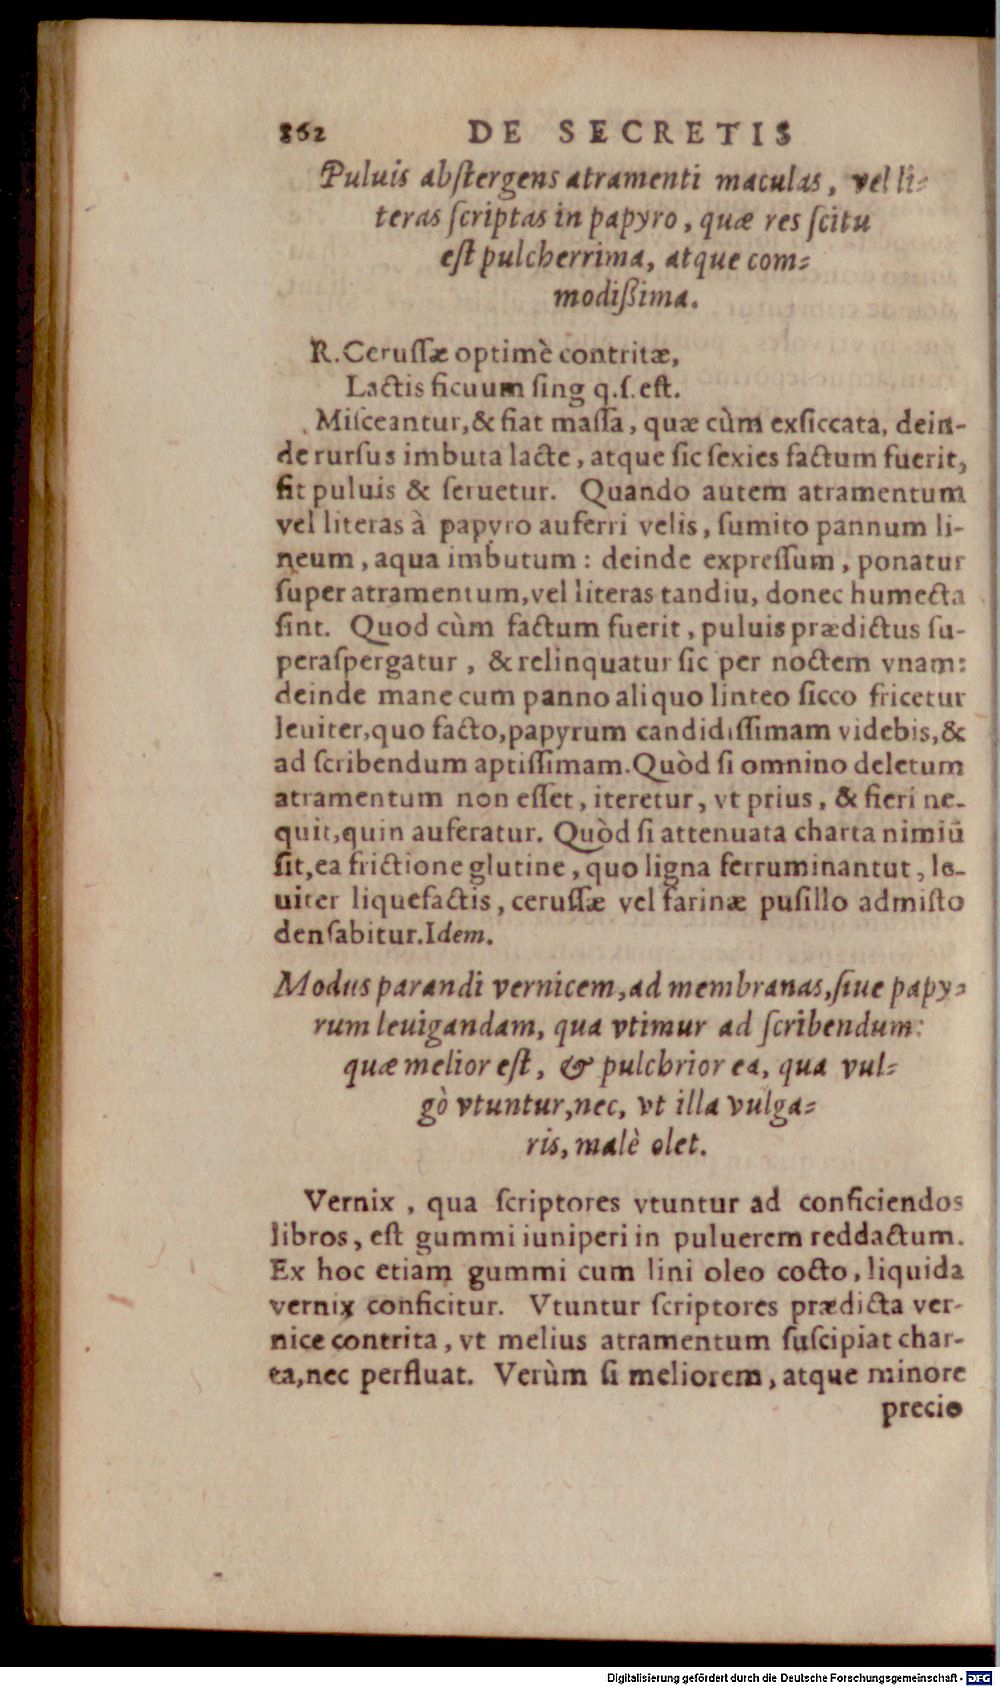 862 DE SECRETIS
Puluis abſtergens atramenti maculas, vel li-
teras ſcriptas in papyro, quæ res ſcitu
eſt pulcherrima, atque com-
modißima.
R. Ceruſſæ optimè contritæ,
Lactis ficuum ſing q.ſ. eſt.
Miſceantur, & fiat maſſa, quæ cùm exſiccata, dein-
de rurſus imbuta lacte, atque ſic ſexies factum fuerit,
fit puluis & ſeruetur. Quando autem atramentum
vel literas à papyro auferri velis, ſumito pannum li-
neum, aqua imbutum: deinde expreſſum, ponatur
ſuper atramentum, vel literas tandiu, donec humecta
ſint. Quod cùm factum fuerit, puluis prædictus ſu-
peraſpergatur, & relinquatur ſic per noctem vnam:
deinde mane cum panno aliquo linteo ſicco fricetur
leuiter, quo facto, papyrum candidiſſimam videbis, &
ad ſcribendum aptiſſimam. Quòd ſi omnino deletum
atramentum non eſſet, iteretur, vt prius, & fieri ne-
quit, quin auferatur. Quòd ſi attenuata charta nimiū
ſit, ea frictione glutine, quo ligna ferruminantut, le-
uiter liquefactis, ceruſſæ vel farinæ puſillo admiſto
denſabitur. Idem.
Modus parandi vernicem, ad membranas, ſiue papy-
rum leuigandam, qua vtimur ad ſcribendum:
quæ melior eſt, & pulchrior ea, qua vul-
gò vtuntur, nec, vt illa vulga-
ris, malè olet.
Vernix, qua ſcriptores vtuntur ad conficiendos
libros, eſt gummi iuniperi in puluerem reddactum.
Ex hoc etiam gummi cum lini oleo cocto, liquida
vernix conficitur. Vtuntur ſcriptores prædicta ver-
nice contrita, vt melius atramentum ſuſcipiat char-
ta, nec perfluat. Verùm ſi meliorem, atque minore
precio
Digitalisierung gefördert durch die Deutsche Forschungsgemeinschaft - DFG